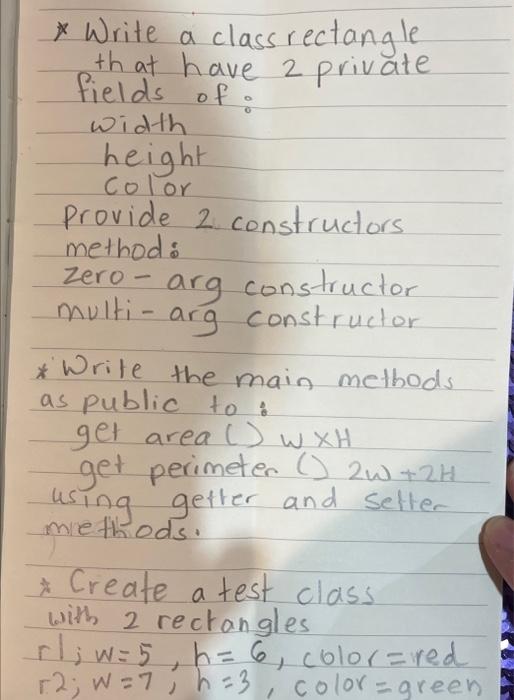 * Write a class rectangle
that have 2 private
fields of :
width
height
color
provide 2 constructors
method :
zero - arg constructor
multi - arg constructor
* Write the main methods
as public to :
get area () W X H
get perimeter () 2W + 2H
using getter and setter
methods.
* Create a test class
with 2 rectangles
r1; W = 5, h = 6, color = red
r2; W = 7, h = 3, color = green